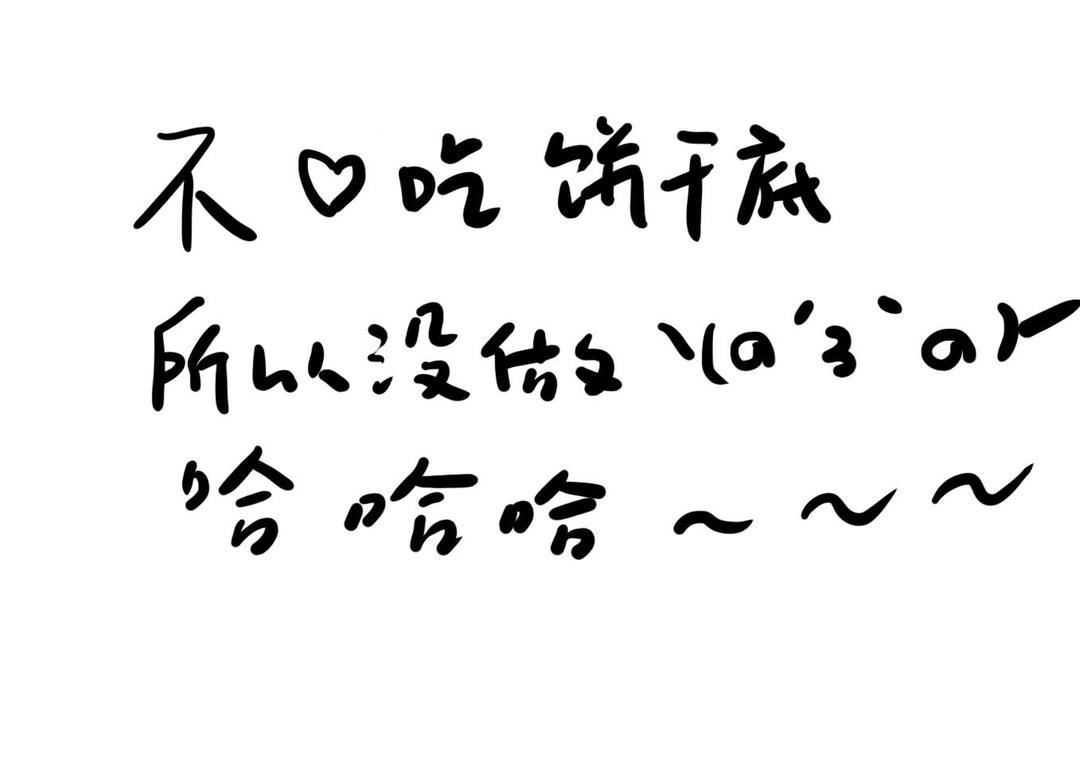 不♡吃饼干底
所以没做ヽ(a'3`a)ノ
哈哈哈~~~